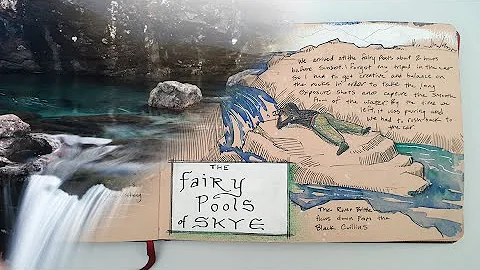 We arrived at the fairy Pools about 2 hours
before sunset. I forgot my tripod in the car
so I had to get creative and balance on
the rocks in order to take the long
exposure shots and capture the smooth
flow of the water. By the time we
left, it was pouring and
we had to rush back to
the car.
THE
fairy
Pools
of SKYE
The River Brittle
flows down from the
Black Cuillins